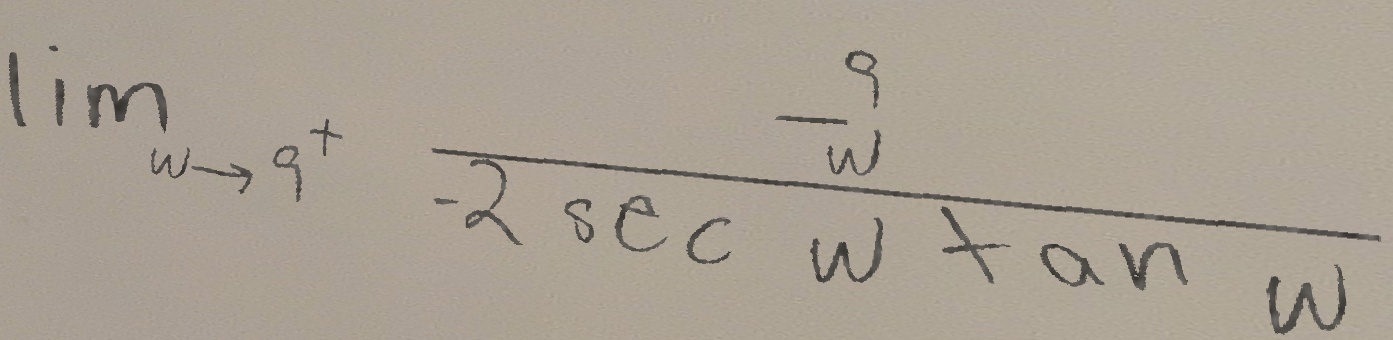 lim w→9⁺ (9/w)/(-2 sec w tan w)